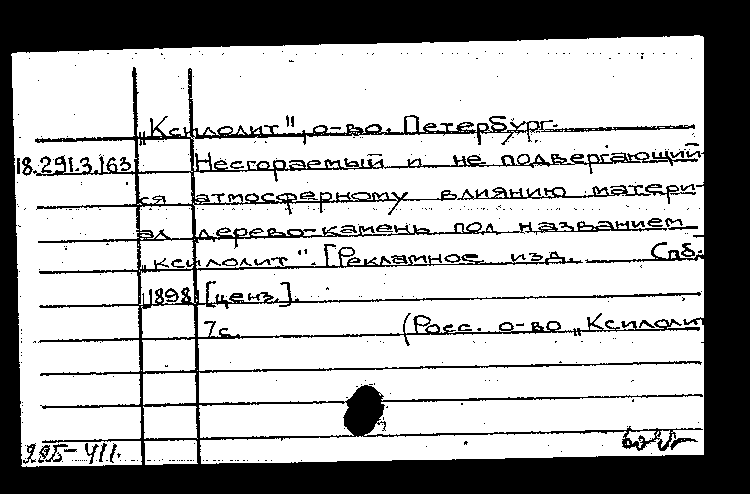 „Ксилолит", о-во. Петербург.
18.291.3.163 Несгораемый и не подвергающий-
ся атмосферному влиянию матери-
ал дерево-камень под названием
„ксилолит". [Рекламное изд. Спб.
1898 [ценз.].
7с. (Росс. о-во „Ксилолит